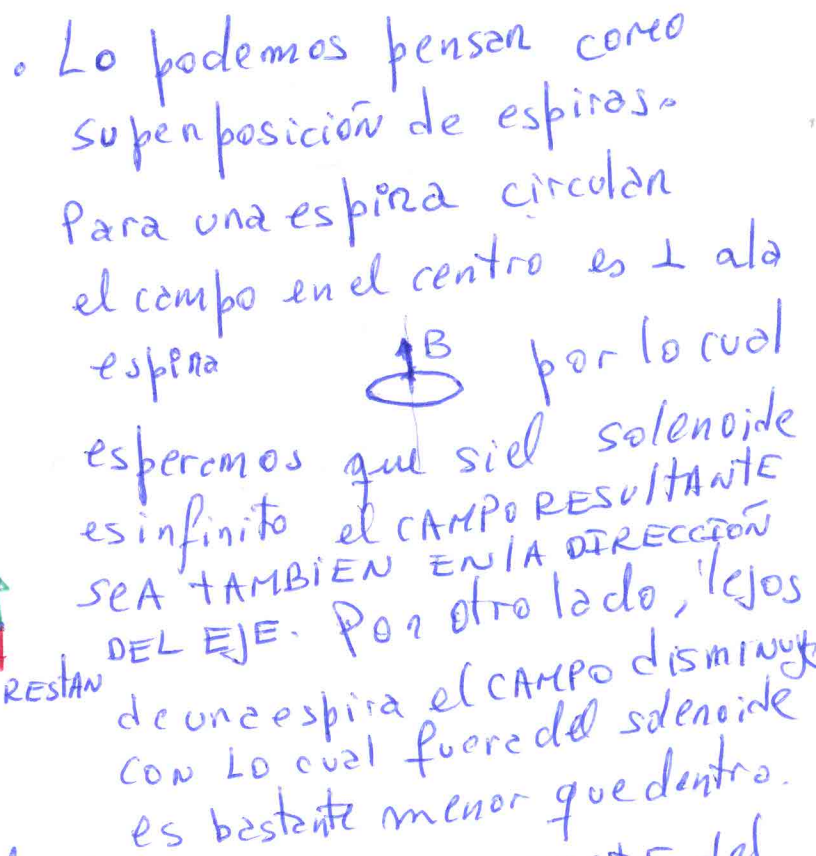 . Lo podemos pensar como
superposición de espiras.
Para una espira circular
el campo en el centro es ⊥ a la
espira B por lo cual
esperemos que si el solenoide
es infinito el CAMPO RESULTANTE
SEA TAMBIEN EN LA DIRECCIÓN
DEL EJE. Por otro lado, lejos
RESTAN
de una espira el CAMPO disminuye
CON LO cual fuera del solenoide
es bastante menor que dentro.